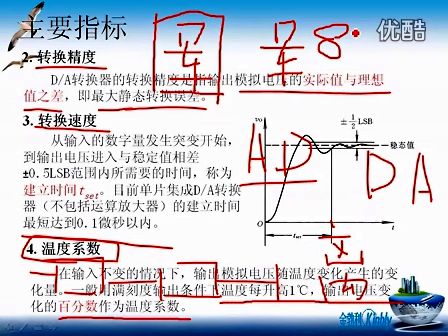 主要指标
优酷
2. 转换精度
D/A转换器的转换精度是指输出模拟电压的实际值与理想
值之差，即最大静态转换误差。
3. 转换速度
从输入的数字量发生突变开始，
到输出电压进入与稳定值相差
±0.5LSB范围内所需要的时间，称为
建立时间tset。目前单片集成D/A转换
器（不包括运算放大器）的建立时间
最短达到0.1微秒以内。
±1/2 LSB
稳态值
A D
D A
O
t
tset
4. 温度系数
在输入不变的情况下，输出模拟电压随温度变化产生的变
化量。一般用满刻度输出条件下温度每升高1℃，输出电压变
化的百分数作为温度系数。